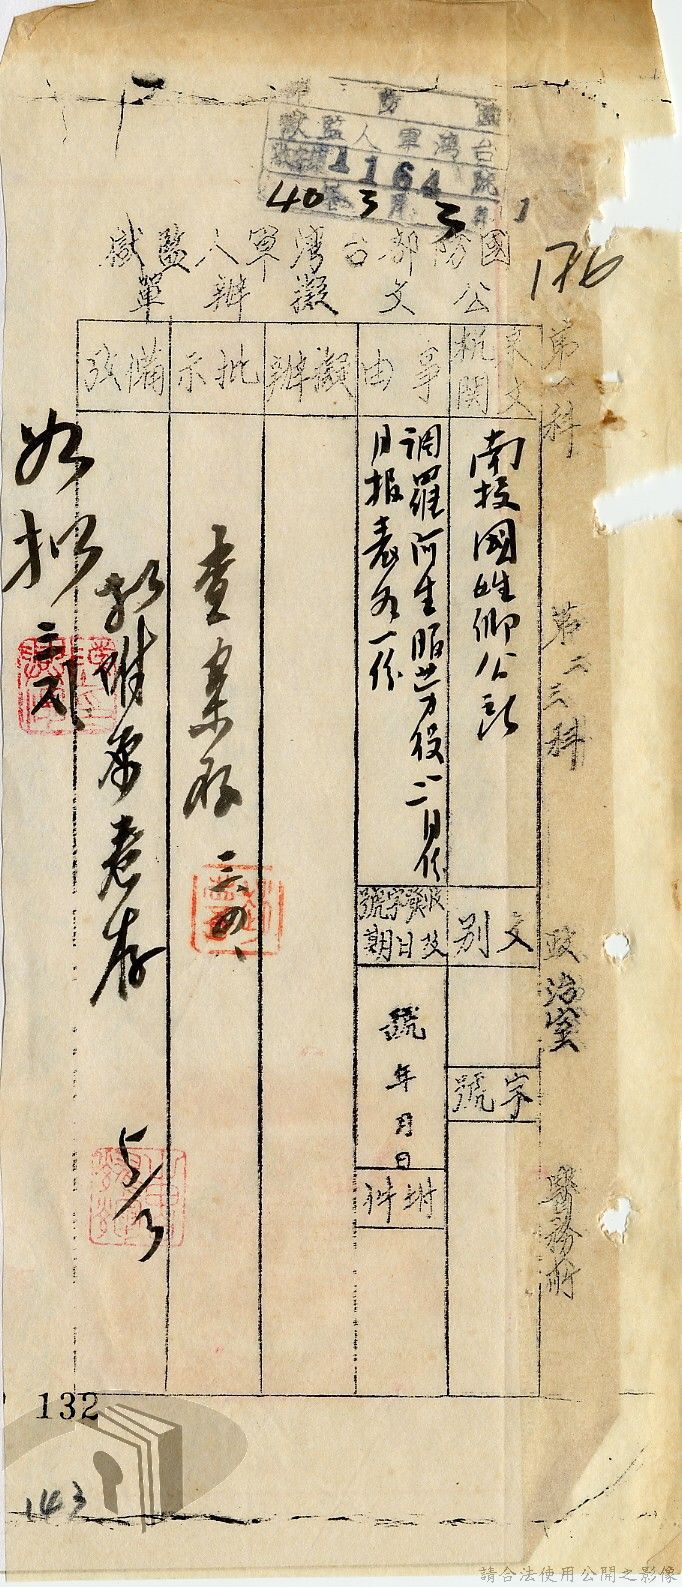 國防部
台灣軍人監獄
1164號
40年3月3
176
國防部台灣軍人監獄
公文擬辦單
第一科
第二三科
政治室
醫務所
來文機關
南投國姓鄉公所
文別
字號
事由
調羅阿生服勞役一二月份
月報表各一份
收發字號及日期
號
年
月
日
附件
擬辦
批示
查案存
三、四、
備攷
存
如擬
132
143
請合法使用公開之影像